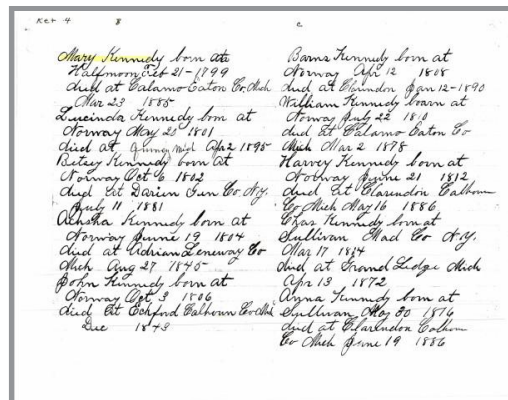 Ket 4 B C
Mary Kennedy born at
Halfmoon Oct 21-1799
died at Calamo Eaton Co. Mich
Mar 23 1885
Lucinda Kennedy born at
Norway May 20 1801
died at Mich Apr 2 1895
Betsey Kennedy born at
Norway Oct 6 1802
died at Darien Gen Co. N.Y.
July 11 1881
Achsha Kennedy born at
Norway June 19 1804
died at Adrian Leneway Co
Mich Aug 27 1845
John Kennedy born at
Norway Oct 3 1806
died at Eckford Calhoun Co Mich
Dec 1843
Barns Kennedy born at
Norway Apr 12 1808
died at Clarindon Jan 12-1890
William Kennedy boarn at
Norway July 22 1810
died at Calamo Eaton Co
Mich Mar 2 1878
Harvey Kennedy born at
Norway June 21 1812
died at Clarendon Calhoun
Co Mich May 16 1886
Chas Kennedy born at
Sullivan Mad Co N.Y.
Mar 17 1814
died at Grand Ledge Mich
Apr 13 1872
Anna Kennedy born at
Sullivan May 30 1816
died at Clarendon Calhoun
Co Mich June 19 1886